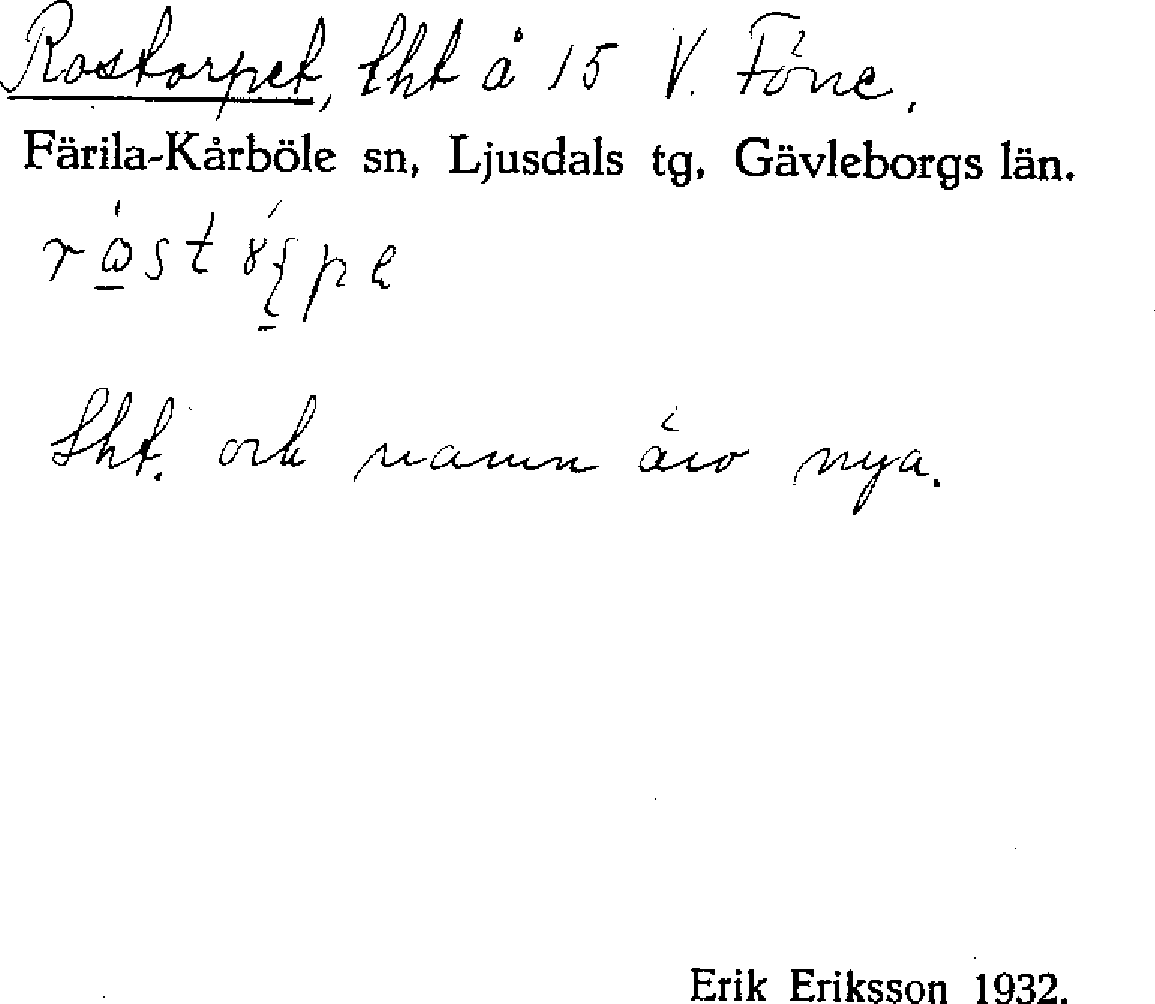 Rostorpet, lht å 15 V. Föne.
Färila-Kårböle sn, Ljusdals tg, Gävleborgs län.
Lht. och namn äro nya.
Erik Eriksson 1932.